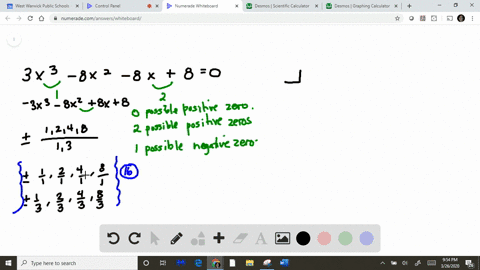 West Warwick Public Schools
Control Panel
Numerade Whiteboard
Desmos | Scientific Calculator
Desmos | Graphing Calculator
numerade.com/answers/whiteboard/
3x³ - 8x² - 8x + 8 = 0
1 2
-3x³ - 8x² + 8x + 8
0 possible positive zero.
± 1,2,4,8
1,3
2 possible positive zeros
1 possible negative zero.
± 1/1, 2/1, 4/1, 8/1
16
± 1/3, 2/3, 4/3, 8/3
Type here to search
9:54 PM
5/26/2020